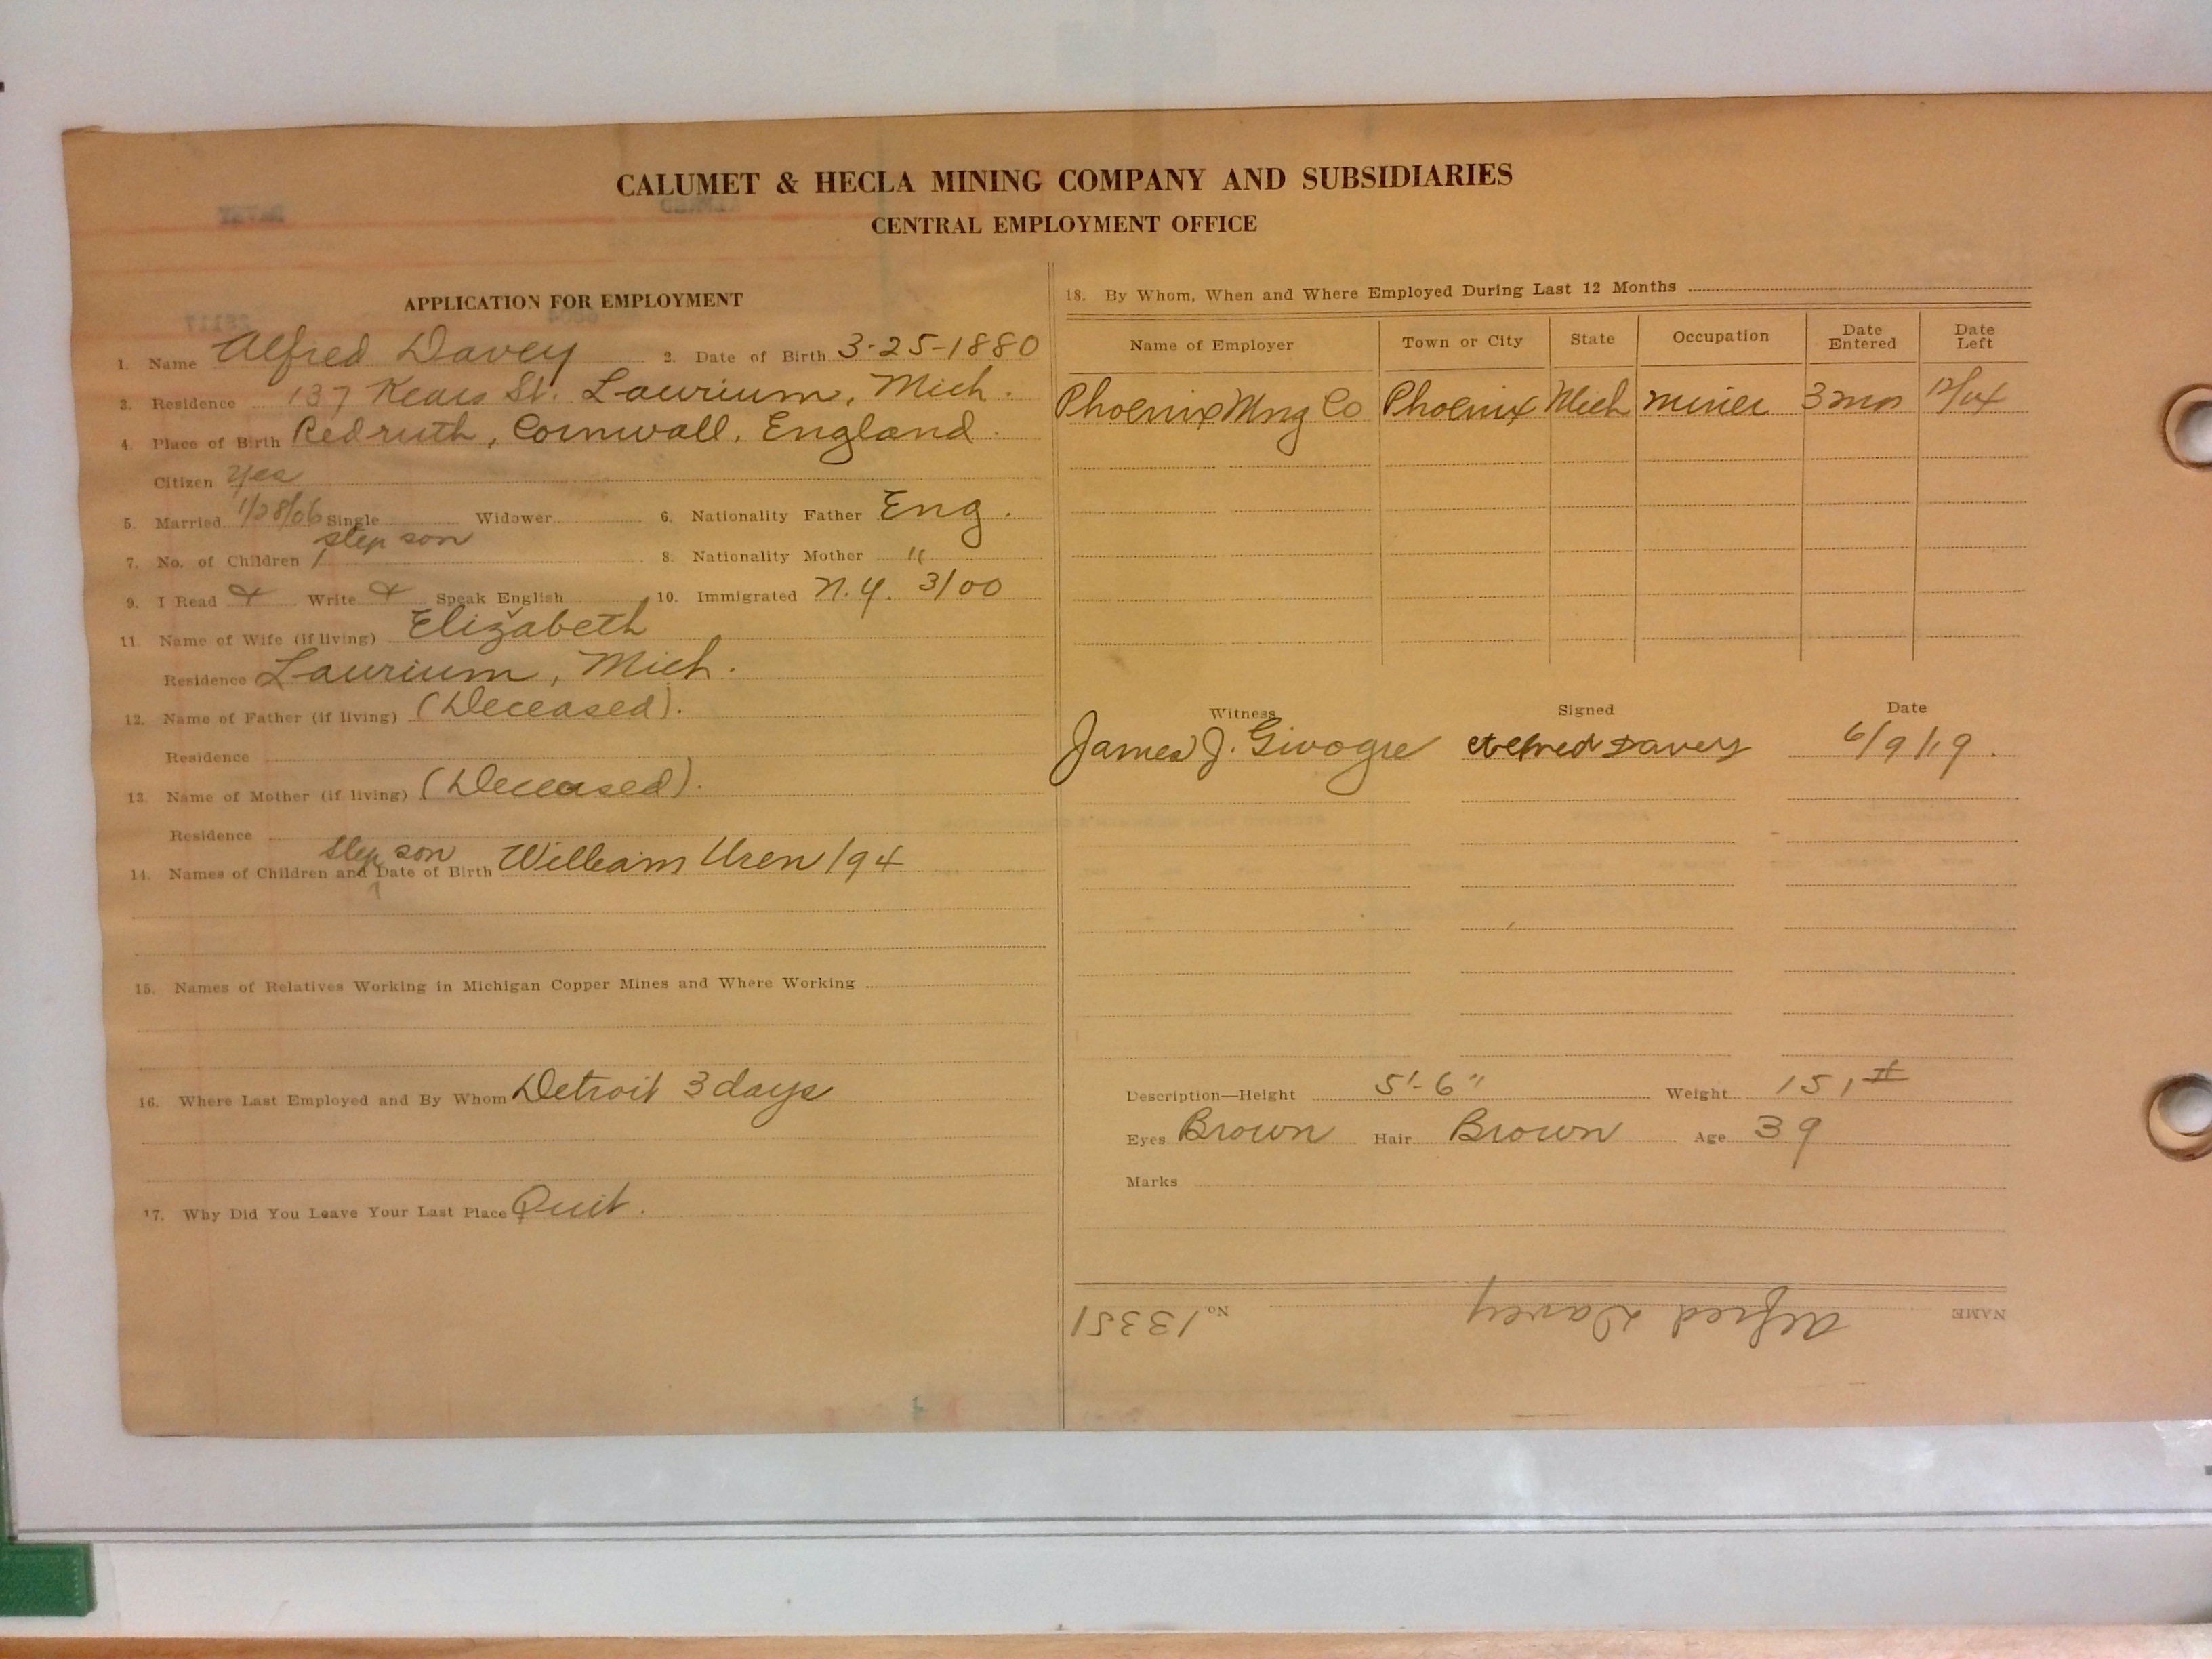 CALUMET & HECLA MINING COMPANY AND SUBSIDIARIES
CENTRAL EMPLOYMENT OFFICE
APPLICATION FOR EMPLOYMENT
1. Name Alfred Davey 2. Date of Birth 3-25-1880
3. Residence 137 Kears St. Laurium, Mich.
4. Place of Birth Redruth, Cornwall, England.
Citizen Yes
5. Married 1/28/06 Single Widower 6. Nationality Father Eng.
step son
7. No. of Children 1 8. Nationality Mother "
9. I Read Write Speak English 10. Immigrated N.Y. 3/00
11. Name of Wife (if living) Elizabeth
Residence Laurium, Mich.
12. Name of Father (if living) (Deceased).
Residence
13. Name of Mother (if living) (Deceased).
Residence
step son
14. Names of Children and Date of Birth William Uren 194
15. Names of Relatives Working in Michigan Copper Mines and Where Working
16. Where Last Employed and By Whom Detroit 3 days
17. Why Did You Leave Your Last Place Quit.
18. By Whom, When and Where Employed During Last 12 Months
Name of Employer Town or City State Occupation Date Entered Date Left
Phoenix Mng Co Phoenix Mich miner 3 mos
Witness Signed Date
James J. Alfred Davey 6/9/19.
Description—Height 5'-6" Weight 151 #
Eyes Brown Hair Brown Age 39
Marks
NAME Alfred Davey No. 13351